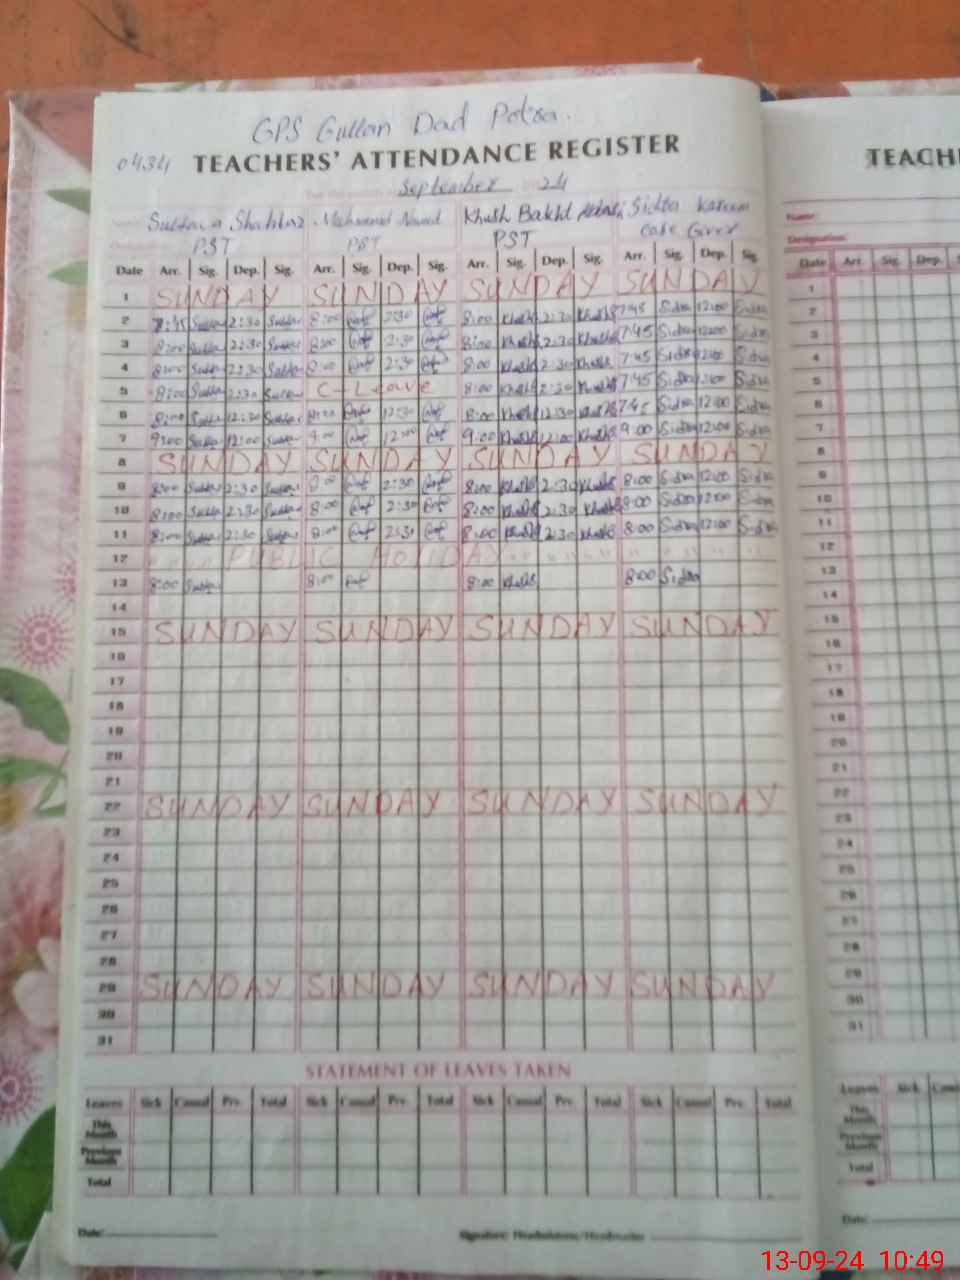 GPS Gullan Dad Potra.
0434 TEACHERS' ATTENDANCE REGISTER
September 24
Sultana Shahbaz Muhammad Naveed Khush Bakht Abbasi Sidra Kareem
PST PST PST Care Giver
Date Arr. Sig. Dep. Sig. Arr. Sig. Dep. Sig. Arr. Sig. Dep. Sig. Arr. Sig. Dep. Sig.
1 SUNDAY SUNDAY SUNDAY SUNDAY
2 2:30 8:00 2:30 8:00 Khush 2:30 Khush 7:45 Sidra 12:00 Sidra
3 8:00 2:30 8:00 2:30 8:00 Khush 2:30 Khush 7:45 Sidra 12:00 Sidra
4 8:00 2:30 8:00 2:30 8:00 Khush 2:30 Khush 7:45 Sidra 12:00 Sidra
5 8:00 2:30 C-Leave 8:00 Khush 2:30 Khush 7:45 Sidra 12:00 Sidra
6 8:00 12:30 8:00 12:30 8:00 Khush 12:30 Khush 7:45 Sidra 12:00 Sidra
7 9:00 12:00 9:00 12:00 9:00 Khush 12:00 Khush 9:00 Sidra 12:00 Sidra
8 SUNDAY SUNDAY SUNDAY SUNDAY
9 8:00 2:30 8:00 2:30 8:00 Khush 2:30 Khush 8:00 Sidra 12:00 Sidra
10 8:00 2:30 8:00 2:30 8:00 Khush 2:30 Khush 8:00 Sidra 12:00 Sidra
11 8:00 2:30 8:00 2:30 8:00 Khush 2:30 Khush 8:00 Sidra 12:00 Sidra
12 PUBLIC HOLIDAY
13 8:00 8:00 8:00 Khush 8:00 Sidra
14
15 SUNDAY SUNDAY SUNDAY SUNDAY
16
17
18
19
20
21
22 SUNDAY SUNDAY SUNDAY SUNDAY
23
24
25
26
27
28
29 SUNDAY SUNDAY SUNDAY SUNDAY
30
31
STATEMENT OF LEAVES TAKEN
Leaves Sick Casual Prv. Total Sick Casual Prv. Total Sick Casual Prv. Total Sick Casual Prv. Total
This Month
Previous Month
Total
Date: Signature: Headmistress/Headmaster
TEACH
Name:
Designation:
Date Arr. Sig. Dep. S
1
2
3
4
5
6
7
8
9
10
11
12
13
14
15
16
17
18
19
20
21
22
23
24
25
26
27
28
29
30
31
Leaves Sick Casu
This Month
Previous Month
Total
Date:
13-09-24 10:49